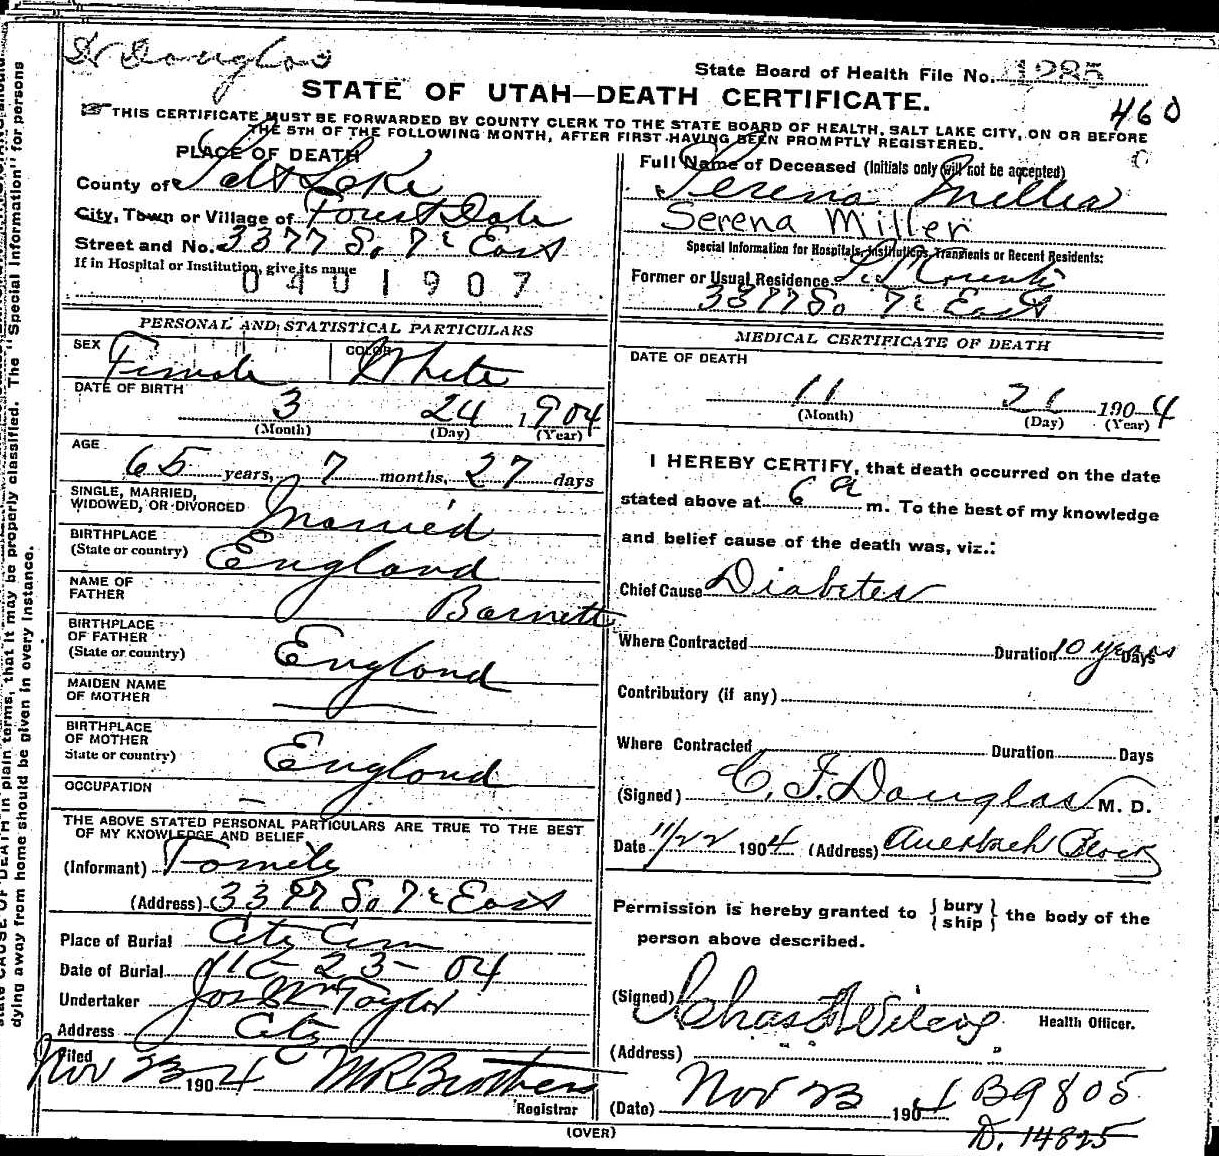 Dr Douglas
State Board of Health File No. 1285
STATE OF UTAH—DEATH CERTIFICATE.
460
THIS CERTIFICATE MUST BE FORWARDED BY COUNTY CLERK TO THE STATE BOARD OF HEALTH, SALT LAKE CITY, ON OR BEFORE
THE 5TH OF THE FOLLOWING MONTH, AFTER FIRST HAVING BEEN PROMPTLY REGISTERED.
PLACE OF DEATH
County of Salt Lake
City, Town or Village of Forest Dale
Street and No. 3377 So 7th East
If in Hospital or Institution, give its name
0401907
Full Name of Deceased (Initials only will not be accepted)
Serena Miller
Serena Miller
Special Information for Hospitals, Institutions, Transients or Recent Residents:
Former or Usual Residence S. L. County
3377 So 7th East
PERSONAL AND STATISTICAL PARTICULARS
SEX Female COLOR White
DATE OF BIRTH
3 24 1904
(Month) (Day) (Year)
AGE
65 years, 7 months, 27 days
SINGLE, MARRIED,
WIDOWED, OR DIVORCED Married
BIRTHPLACE
(State or country) England
NAME OF
FATHER Barnett
BIRTHPLACE
OF FATHER
(State or country) England
MAIDEN NAME
OF MOTHER —
BIRTHPLACE
OF MOTHER
State or country) England
OCCUPATION —
THE ABOVE STATED PERSONAL PARTICULARS ARE TRUE TO THE BEST
OF MY KNOWLEDGE AND BELIEF
(Informant) Family
(Address) 3377 So 7th East
Place of Burial City Cem
Date of Burial 11 - 23 - 04
Undertaker Jos Wm Taylor
Address City
Filed
Nov 23 1904 M R Brothers
Registrar
MEDICAL CERTIFICATE OF DEATH
DATE OF DEATH
11 21 1904
(Month) (Day) (Year)
I HEREBY CERTIFY, that death occurred on the date
stated above at 6 a m. To the best of my knowledge
and belief cause of the death was, viz.:
Chief Cause Diabetes
Where Contracted Duration 10 years Days
Contributory (if any)
Where Contracted Duration Days
(Signed) C. F. Douglas M. D.
Date 11/22 1904 (Address) Auerbach Block
Permission is hereby granted to {bury
ship} the body of the
person above described.
(Signed) Chas Wilcox Health Officer.
(Address) " " "
(Date) Nov 23 1904 B9805
D. 14825
(OVER)
state CAUSE OF DEATH in plain terms, that it may be properly classified. The "Special Information" for persons
dying away from home should be given in every instance.